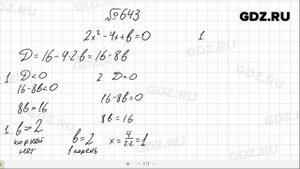 GDZ.RU
№643
2x² - 4x + b = 0
1
D = 16 - 4·2b = 16 - 8b
1 D < 0
16 - 8b < 0
8b > 16
1. b > 2
корней
нет
2 D = 0
16 - 8b = 0
8b = 16
b = 2
1 корень
x = 4/2·2 = 1
- 1/1 +
GDZ.RU
GDZ.RU